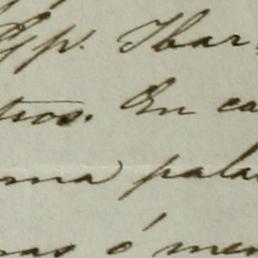 Gyp. Ibar
tros. En ca
ma pala
nas ó men